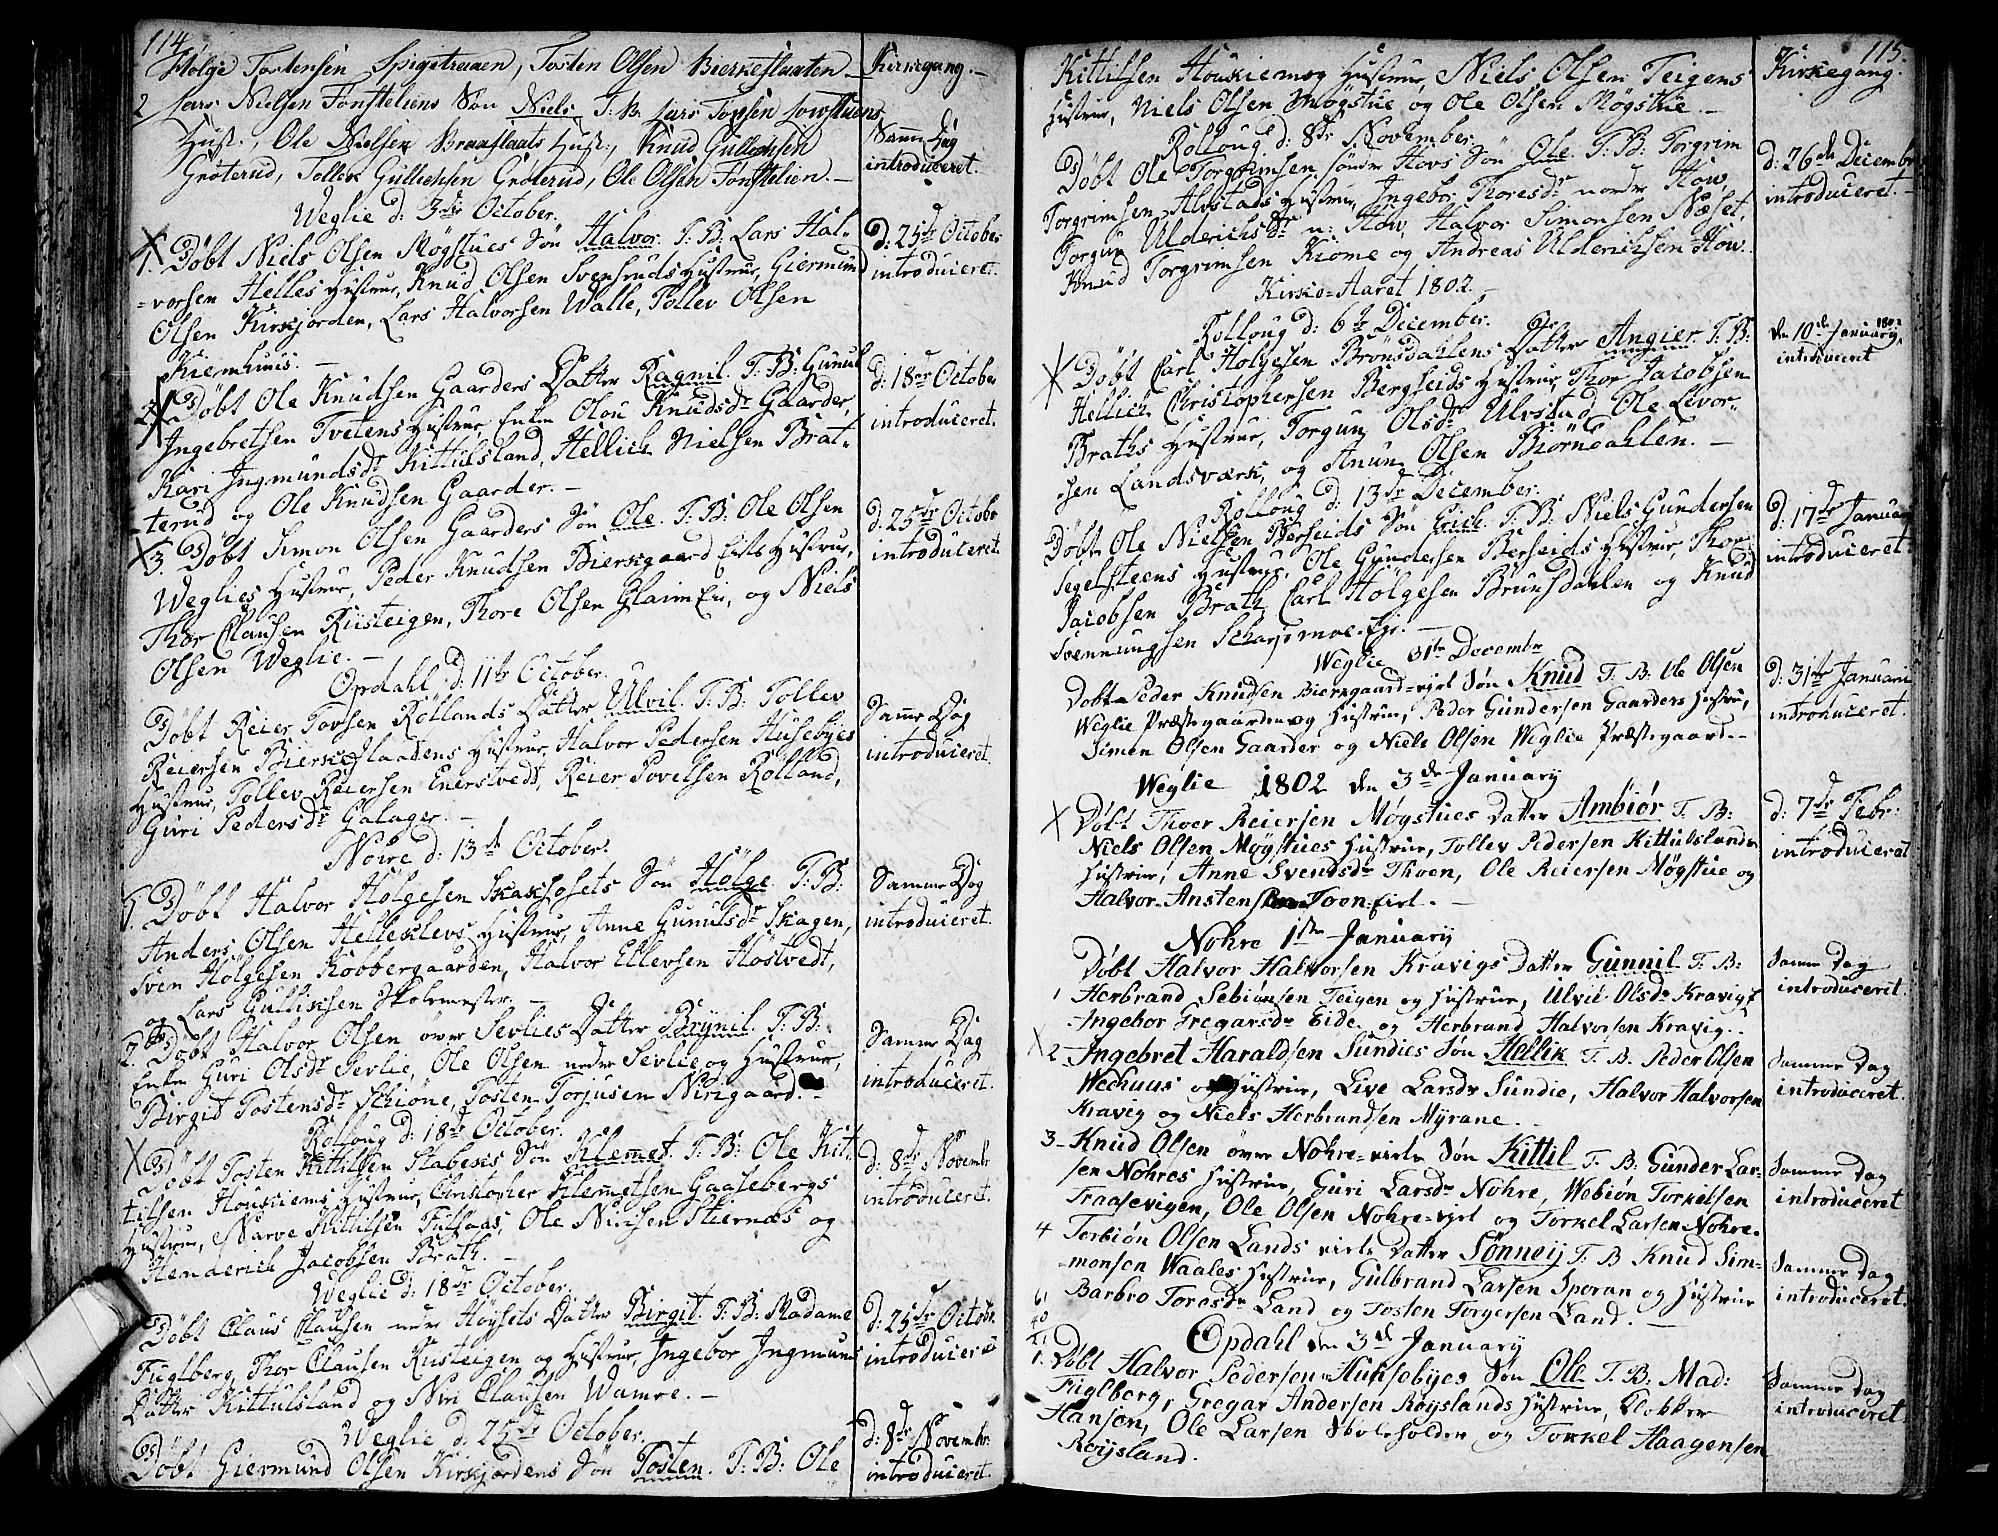 114
Holge Tostensen Spigitraaen, Tosten Olsen Bierkeflaaten
Kirkegang.
2 Lars Nielsen Fonsteliens Søn Niels T. B. Lars
Hust:, Ole Nielsen Braaflaats Hust:, Knud Gullichsen
Grøterud, Tollef Gullichsen Grøterud, Ole Olsen Fonstelien.
Samme Dag
introduceret.
Weglie d: 3de October.
1. Døbt Niels Olsen Møgstues Søn Halvor. T. B: Lars Hal-
=vorsen Helles Hustrue, Knud Olsen Svensruds Hustrue, Giermund
Olsen Kirkjorden, Lars Halvorsen Walle, Tollev Olsen
Kiemhuus.
D: 25de October
introduceret.
2. Døbt Ole Knudsen Gaarders Datter Ragnil. T: B: Gunul
Ingebretsen Tvetens Hustrue, Enke Olou Knudsdr Gaarder,
Kari Ingmundsdr Kittulsland, Hellich Nielsen Brat-
terud og Ole Knudsen Gaarder.
d: 18de October
introduceret.
3. Døbt Simon Olsen Gaarders Søn Ole. T. B: Ole Olsen
Weglies Hustrue, Peder Knudsen Bierkgaard Eits Hustrue,
Thor Clausen Riisteigen, Thore Olsen Glaim Eie, og Niels
Olsen Weglie.
d: 25de Octobr
introduceret.
Opdahl d: 11te October.
Døbt Reier Tovsen Røllands Datter Ulvil. T. B: Tollev
Reiersen Bierkeflaatens Hustrue, Halvor Pedersen Husebyes
Hustrue, Tollev Reiersen Enerstvedt, Reier Povelsen Rolland,
Guri Pedersdr Galager.
Samme Dag
introduceret.
Nore d: 13de October.
1. Døbt Halvor Holgesen Skaksosets Søn Holge. T. B:
Anders Olsen Helleklevs Hustrue, Anne Gunulsdr Skagen,
Sven Holgesen Kobbergaarden, Halvor Ellevsen Høstvedt,
og Lars Gulliksen Skolemester.
Samme Dag
introduceret.
2. Døbt Halvor Olsen over Sevlies Datter Brynil. T. B:
Enke Guri Olsdr Sevlie, Ole Olsen neder Sevlie og Hustrue,
Birgit Tostensdr Schiöne, Tosten Torjusen Nirigaard.
Samme Dag
introduceret.
Rolloug d: 18de October.
Døbt Tosten Kittilsen Stabeks Søn Klemet. T: B: Ole Kit-
tilsen Houkiems Hustrue, Christopher Klemetsen Gaasebergs
Hustrue, Narve Kittilsen Fulsaas, Ole Nirisen Stiernæs og
Henderich Jacobsen Brath.
d: 8de Novembr
introduceret.
Weglie d: 18de October.
Døbt Claus Clausen neder Høysets Datter Birgit. T. B: Madame
Fuglberg, Thor Clausen Riisteigen og Hustrue, Ingebor Ingmunds
Datter Kittulsland og Niri Clausen Wamre.
d: 25de Octobr
introduceret
Weglie d: 25de October.
Døbt Giermund Olsen Kirkjordens Søn Tosten. T: B: Ole
d: 8de Novembr.
introduceret.
115.
Kittilsen Houkiem og Hustrue, Niels Olsen Teigens
Hustrue, Niels Olsen Møgstue og Ole Olsen Møgstue.
Kirkegang.
Rolloug d: 8de November.
Døbt Ole Torgrimsen søndr Hovs Søn Ole. T. B: Torgrim
Torgrimsen Alvstads Hustrue, Ingebor Thoresdr nordr How
Torgun Ulderichsdr n: How, Halvor Simonsen Næset,
Knud Torgrimsen Kiome og Andreas Ulderichsen How.
d: 26de Decembr
introduceret.
Kirke-Aaret 1802.
Rolloug d: 6te December.
Døbt Carl Holgesen Brönsdahlens Datter Angier. T: B:
Hellich Christophersen Bergseids Hustrue, Thor Jacobsen
Braths Hustrue, Torgun Olsdr Ulvstad, Ole Levor-
sen Landsværk, og Anun Olsen Biörndahlen.
den 10de January 1802
introduceret
Rolloug d: 13de December.
Døbt Ole Nielsen Berseids Søn Erich. T: B: Niels Gundersen
Segelsteens Hustrue, Ole Gundersen Berseids Hustrue, Thor
Jacobsen Brath, Carl Holgesen Brunsdahlen og Knud
Svennungsen Scharpmoe-Eje.
D: 17de Januar
introduceret.
Weglie 31te Decembr
Døbt Peder Knudsen Biersgaard-eiet Søn Knud T. B: Ole Olsen
Weglie Præstegaarden og Hustrue, Peder Gundersen Gaarders Hustru,
Simon Olsen Gaarder og Niels Olsen Weglie Præstegaard.
D: 31te Januari
introduceret.
Weglie 1802 den 3de January
Døbt Thoer Reiersen Møgstues Datter Ambiør T. B:
Niels Olsen Møgstues Hustrue, Tollev Pedersen Kittulslands
Hustrue, Anne Svendsdr Thoen, Ole Reiersen Møgstue og
Halvor Anstensen Toon-eiet.
d: 7de Febr:
introduceret
Nohre 1ste January
1 Døbt Halvor Halvorsen Kravigs Datter Gunnil T. B:
Herbrand Sebiønsen Teigen og Hustrue, Ulvil Olsdr Kravig,
Ingebor Gregarsdr Eide og Herbrand Halvorsen Kravig.
Samme Dag
introduceret.
2 Ingebret Haraldsen Sundies Søn Hellik T. B. Peder Olsen
Wedhuus og Hustrue, Live Larsdr Sundie, Halvor Halvorsen
Kravig og Niels Herbrandsen Myrane.
Samme Dag
introduceret.
3 Knud Olsen øvre Nohre-eiets Søn Kittil T. B: Gunder Lar-
sen Nohres Hustrue, Guri Larsdr Nohre, Webiøn Torkelsen
Traasevigen, Ole Olsen Nohre-eiet og Torkel Larsen Nohre.
Samme Dag
introduceret
4 Torbiøn Olsen Lands eiets Datter Sønneij T. B Knud Sim-
monsen Waales Hustrue, Gulbrand Larsen Sporan og Hustrue
Barbro Toresdr Land og Tosten Torgersen Land.
Samme Dag
introduceret.
61
40
21
Opdahl den 3de January
1. Døbt Halvor Pedersen Huusebyes Søn Ole T. B: Mad:
Fuglberg, Gregar Andersen Røyslands Hustrue, Klokker
Hansen, Ole Larsen Skoleholder og Torkel Haagensen
Roijsland.
Samme Dag
introduceret